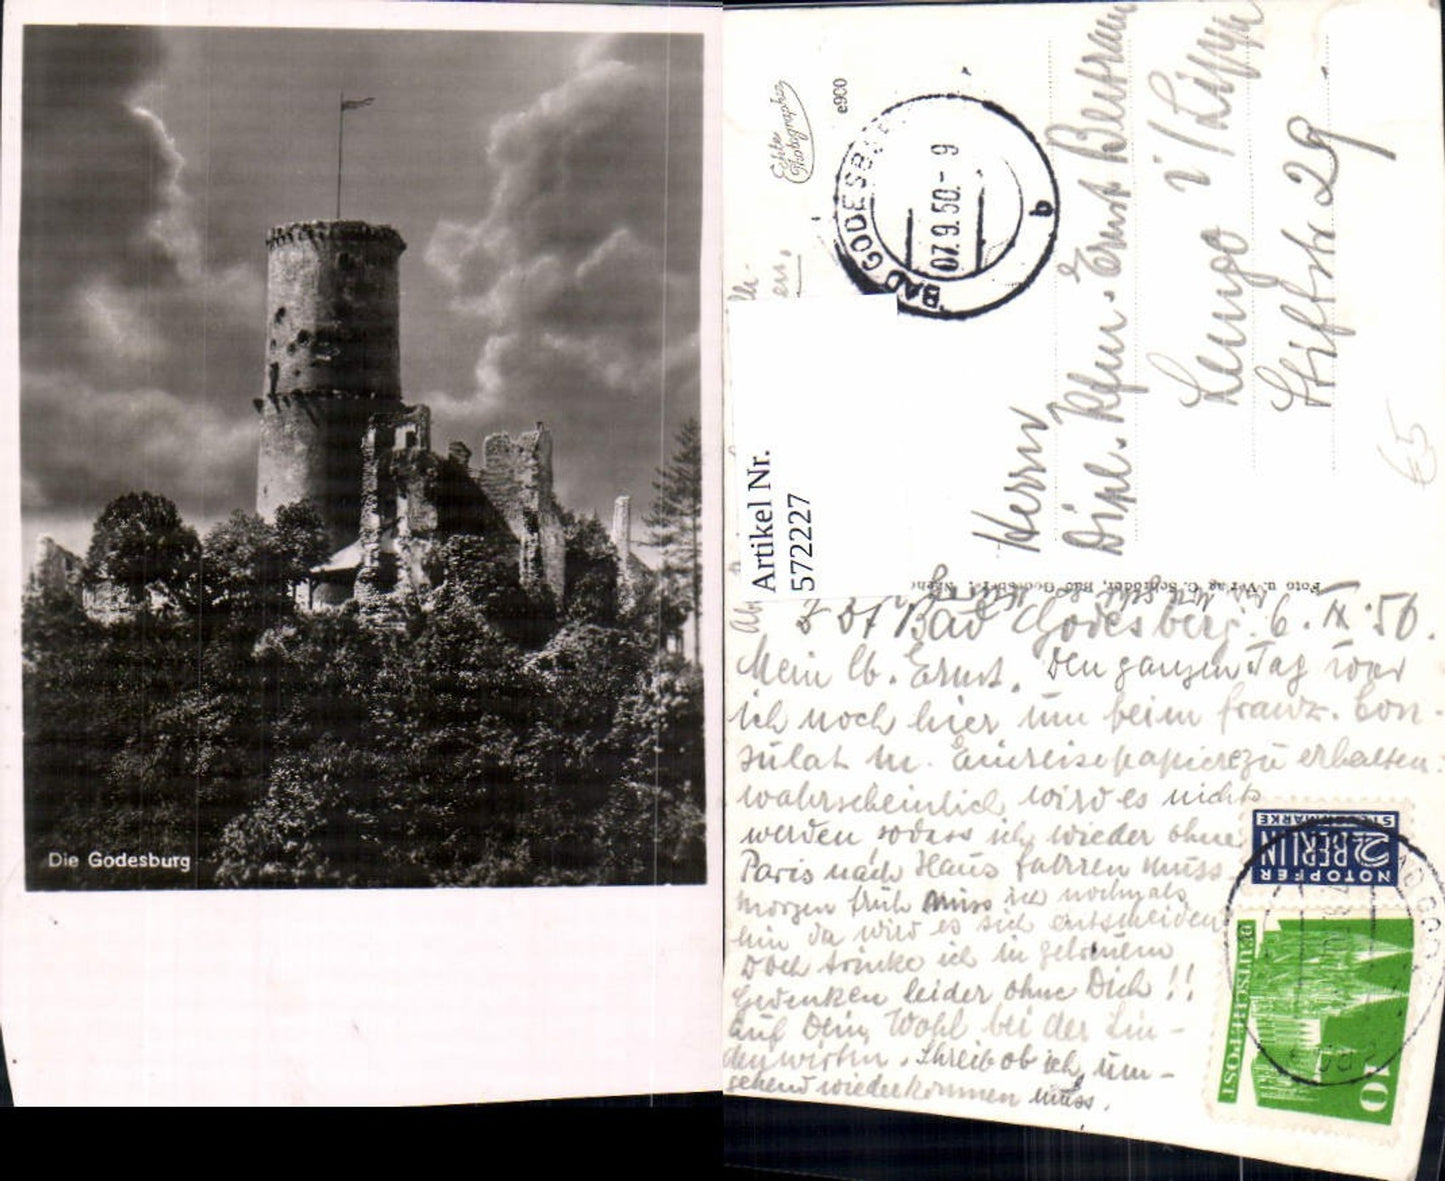 Die Godesburg
Echte
Photographie
e900
BAD GODESB
07.9.50.-9
b
Artikel Nr.
572227
Herrn
Dipl. Ernst
Lemgo i/Lippe
Stiftstr. 29
€5
Foto u. Verlag C. Schröder, Bad Godesberg
Bad Godesberg. 6. IX. 50.
Mein lb. Ernst. Den ganzen Tag war
ich noch hier um beim franz. Con-
sulat m. Einreisepapiere zu erhalten:
wahrscheinlich wird es nichts
werden, sodass ich wieder ohne
Paris nach Haus fahren muss.
Morgen früh muss ich nochmals
hin da wird es sich entscheiden
Doch trinke ich in
Gedenken leider ohne Dich!!
auf Dein Wohl bei der Lin-
denwirtin. Schreib ob ich um-
gehend wiederkommen muss.
NOTOPFER
2 BERLIN
STEUERMARKE
DEUTSCHE POST
10